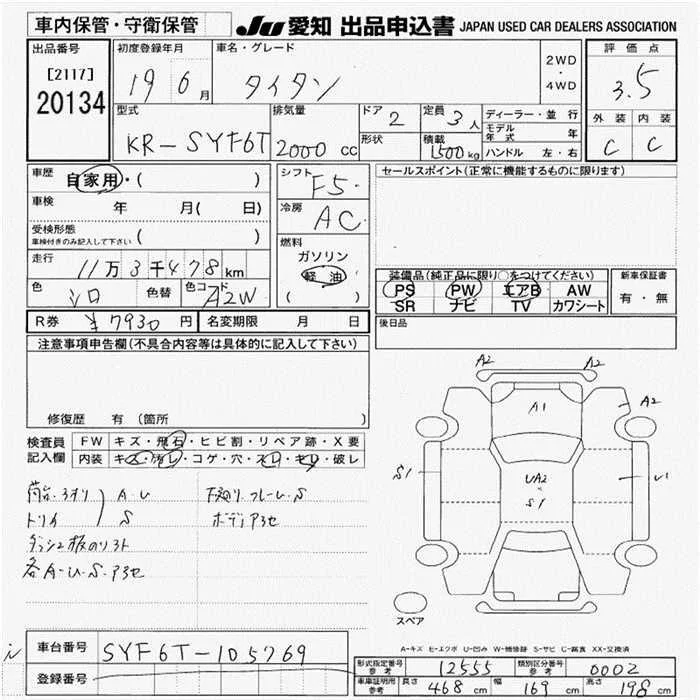 車内保管・守衛保管 JU 愛知 出品申込書 JAPAN USED CAR DEALERS ASSOCIATION
出品番号
[2117]
20134
初度登録年月
19 6 月
車名・グレード
タイタン
2WD
・
4WD
評価点
3.5
外装 内装
C C
型式
KR-SYF6T
排気量
2000 cc
ドア 2
形状
定員 3人
積載 1500kg
ディーラー・並行
モデル年式 年
ハンドル 左・右
車歴 自家用・( )
車検 年 月( 日)
受検形態
車検付きのみ記入して下さい ( )
走行 11万3千478km
色 シロ 色替 色コード A2W
シフト F5
冷房 AC
燃料
ガソリン
軽油
( )
セールスポイント(正常に機能するものに限ります)
装備品(純正品に限り○をつけてください)
PS PW エアB AW
SR ナビ TV カワシート
新車保証書
有・無
R券 ¥7930 円 名変期限 月 日
後日品
注意事項申告欄(不具合内容等は具体的に記入して下さい)
修復歴 有 (箇所 )
検査員記入欄
FW キズ・飛石・ヒビ割・リペア跡・X要
内装 キズ・汚レ・コゲ・穴・スレ・キレ・破レ
荷台・3オリ A・U
トリイ S
下廻り.フレーム.S
ボディアラセ
各A-U.S.アラセ
A2 A2
A1
A2
S1
UA2
S1
U1
スペア
A-キズ E-エクボ U-凹み W-補修跡 S-サビ C-腐食 XX-交換済
車台番号 SYF6T-105769
登録番号
形式指定番号 参考 12555 類別区分番号 参考 0002
車庫証明用 参考 長さ 468 cm 幅 169 cm 高さ 198 cm